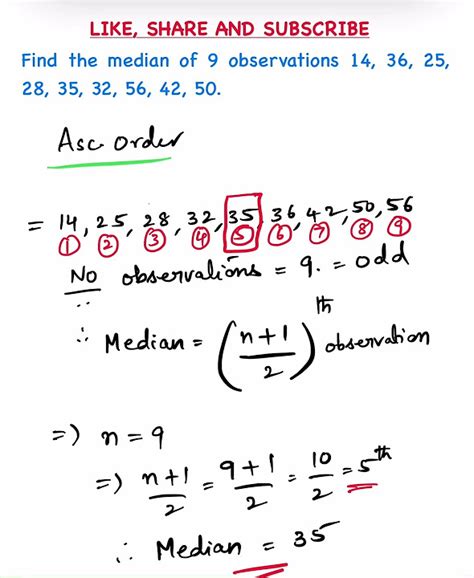 LIKE, SHARE AND SUBSCRIBE
Find the median of 9 observations 14, 36, 25,
28, 35, 32, 56, 42, 50.
Asc order
= 14, 25, 28, 32, 35, 36, 42, 50, 56
1 2 3 4 5 6 7 8 9
No observations = 9. = odd
∵
∴ Median = (n+1/2)th observation
=) n = 9
=) n+1/2 = 9+1/2 = 10/2 = 5th
∴ Median = 35